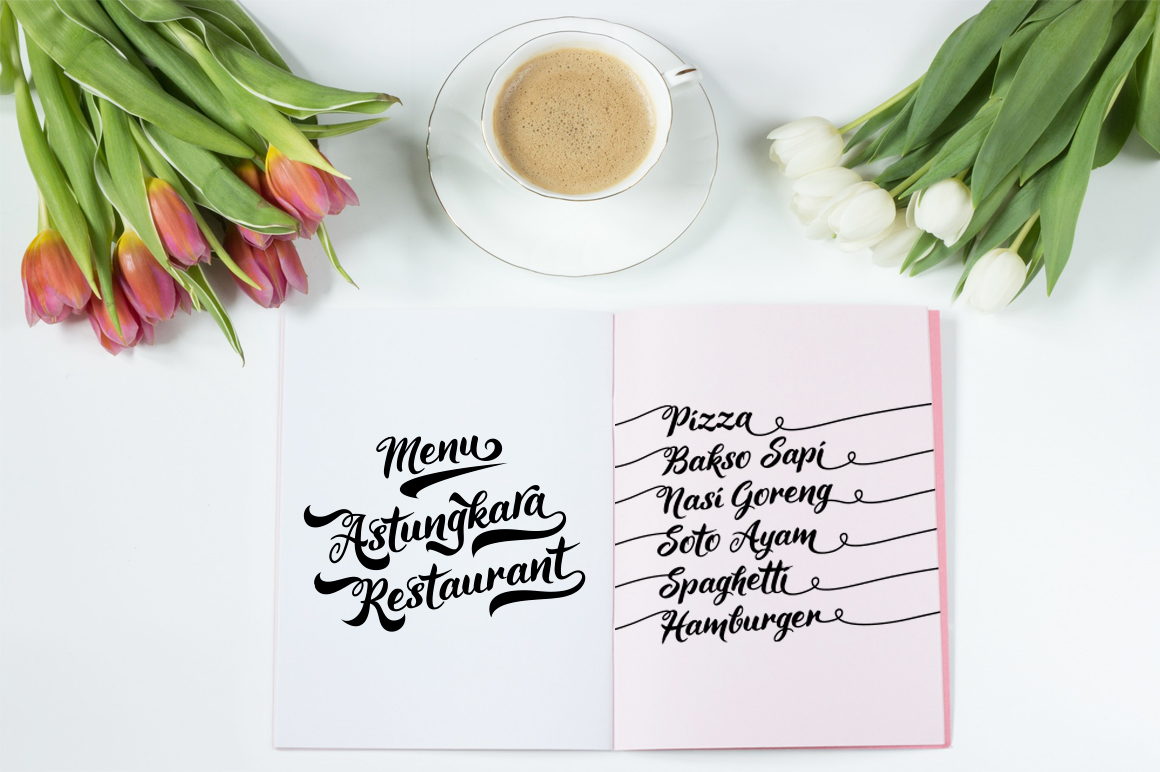 Menu
Astungkara
Restaurant
Pizza
Bakso Sapi
Nasi Goreng
Soto Ayam
Spaghetti
Hamburger